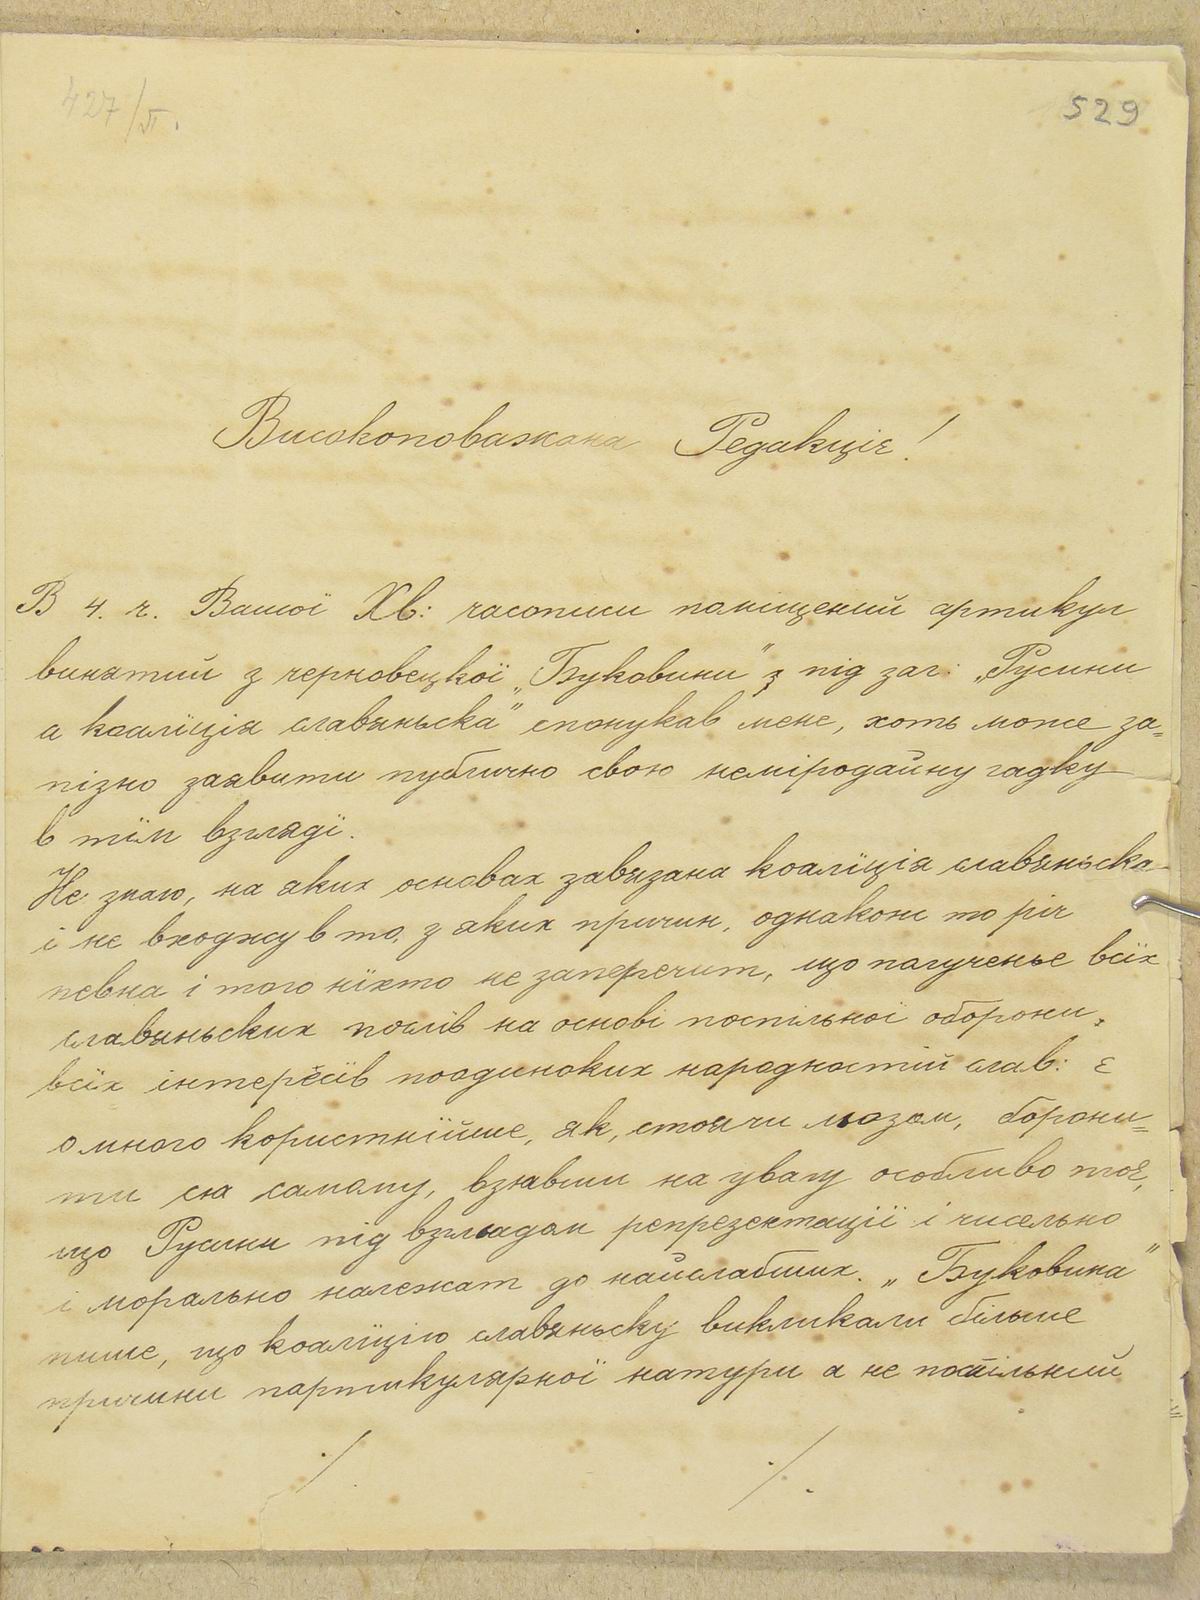 427/
529
Високоповажана Редакціє!
В 4. ч. Вашої Хв: часописи поміщений артикул
винятий з черновецкої „Буковини" з під заг: „Русини
а коаліція славяньска" спонукав мене, хоть може за=
пізно заявити публично свою неміродайну гадку
в тїм взглядї.
Не знаю, на яких основах завязана коалїція славяньска
і не входжу в то, з яких причин, однакож то річ
певна і того нїхто не заперечит, що полученье всїх
славяньских послів на основі поспільної оборони,
всїх інтересів поодиноких народностий слав: є
о много користнїйше, як, стоячи лозом, борони=
ти ся самому, взявши на увагу особливо тоє,
що Русини під взглядом репрезентації і чисельно
і морально належат до найслабших. „Буковина"
пише, що коалїцію славяньску викликали більше
причини партикулярної натури а не поспільний
./. ./.